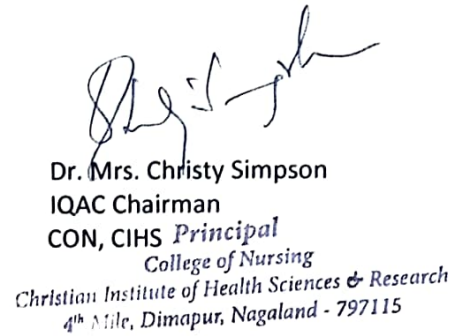 Dr. Mrs. Christy Simpson
IQAC Chairman
CON, CIHS Principal
College of Nursing
Christian Institute of Health Sciences & Research
4th Mile, Dimapur, Nagaland - 797115